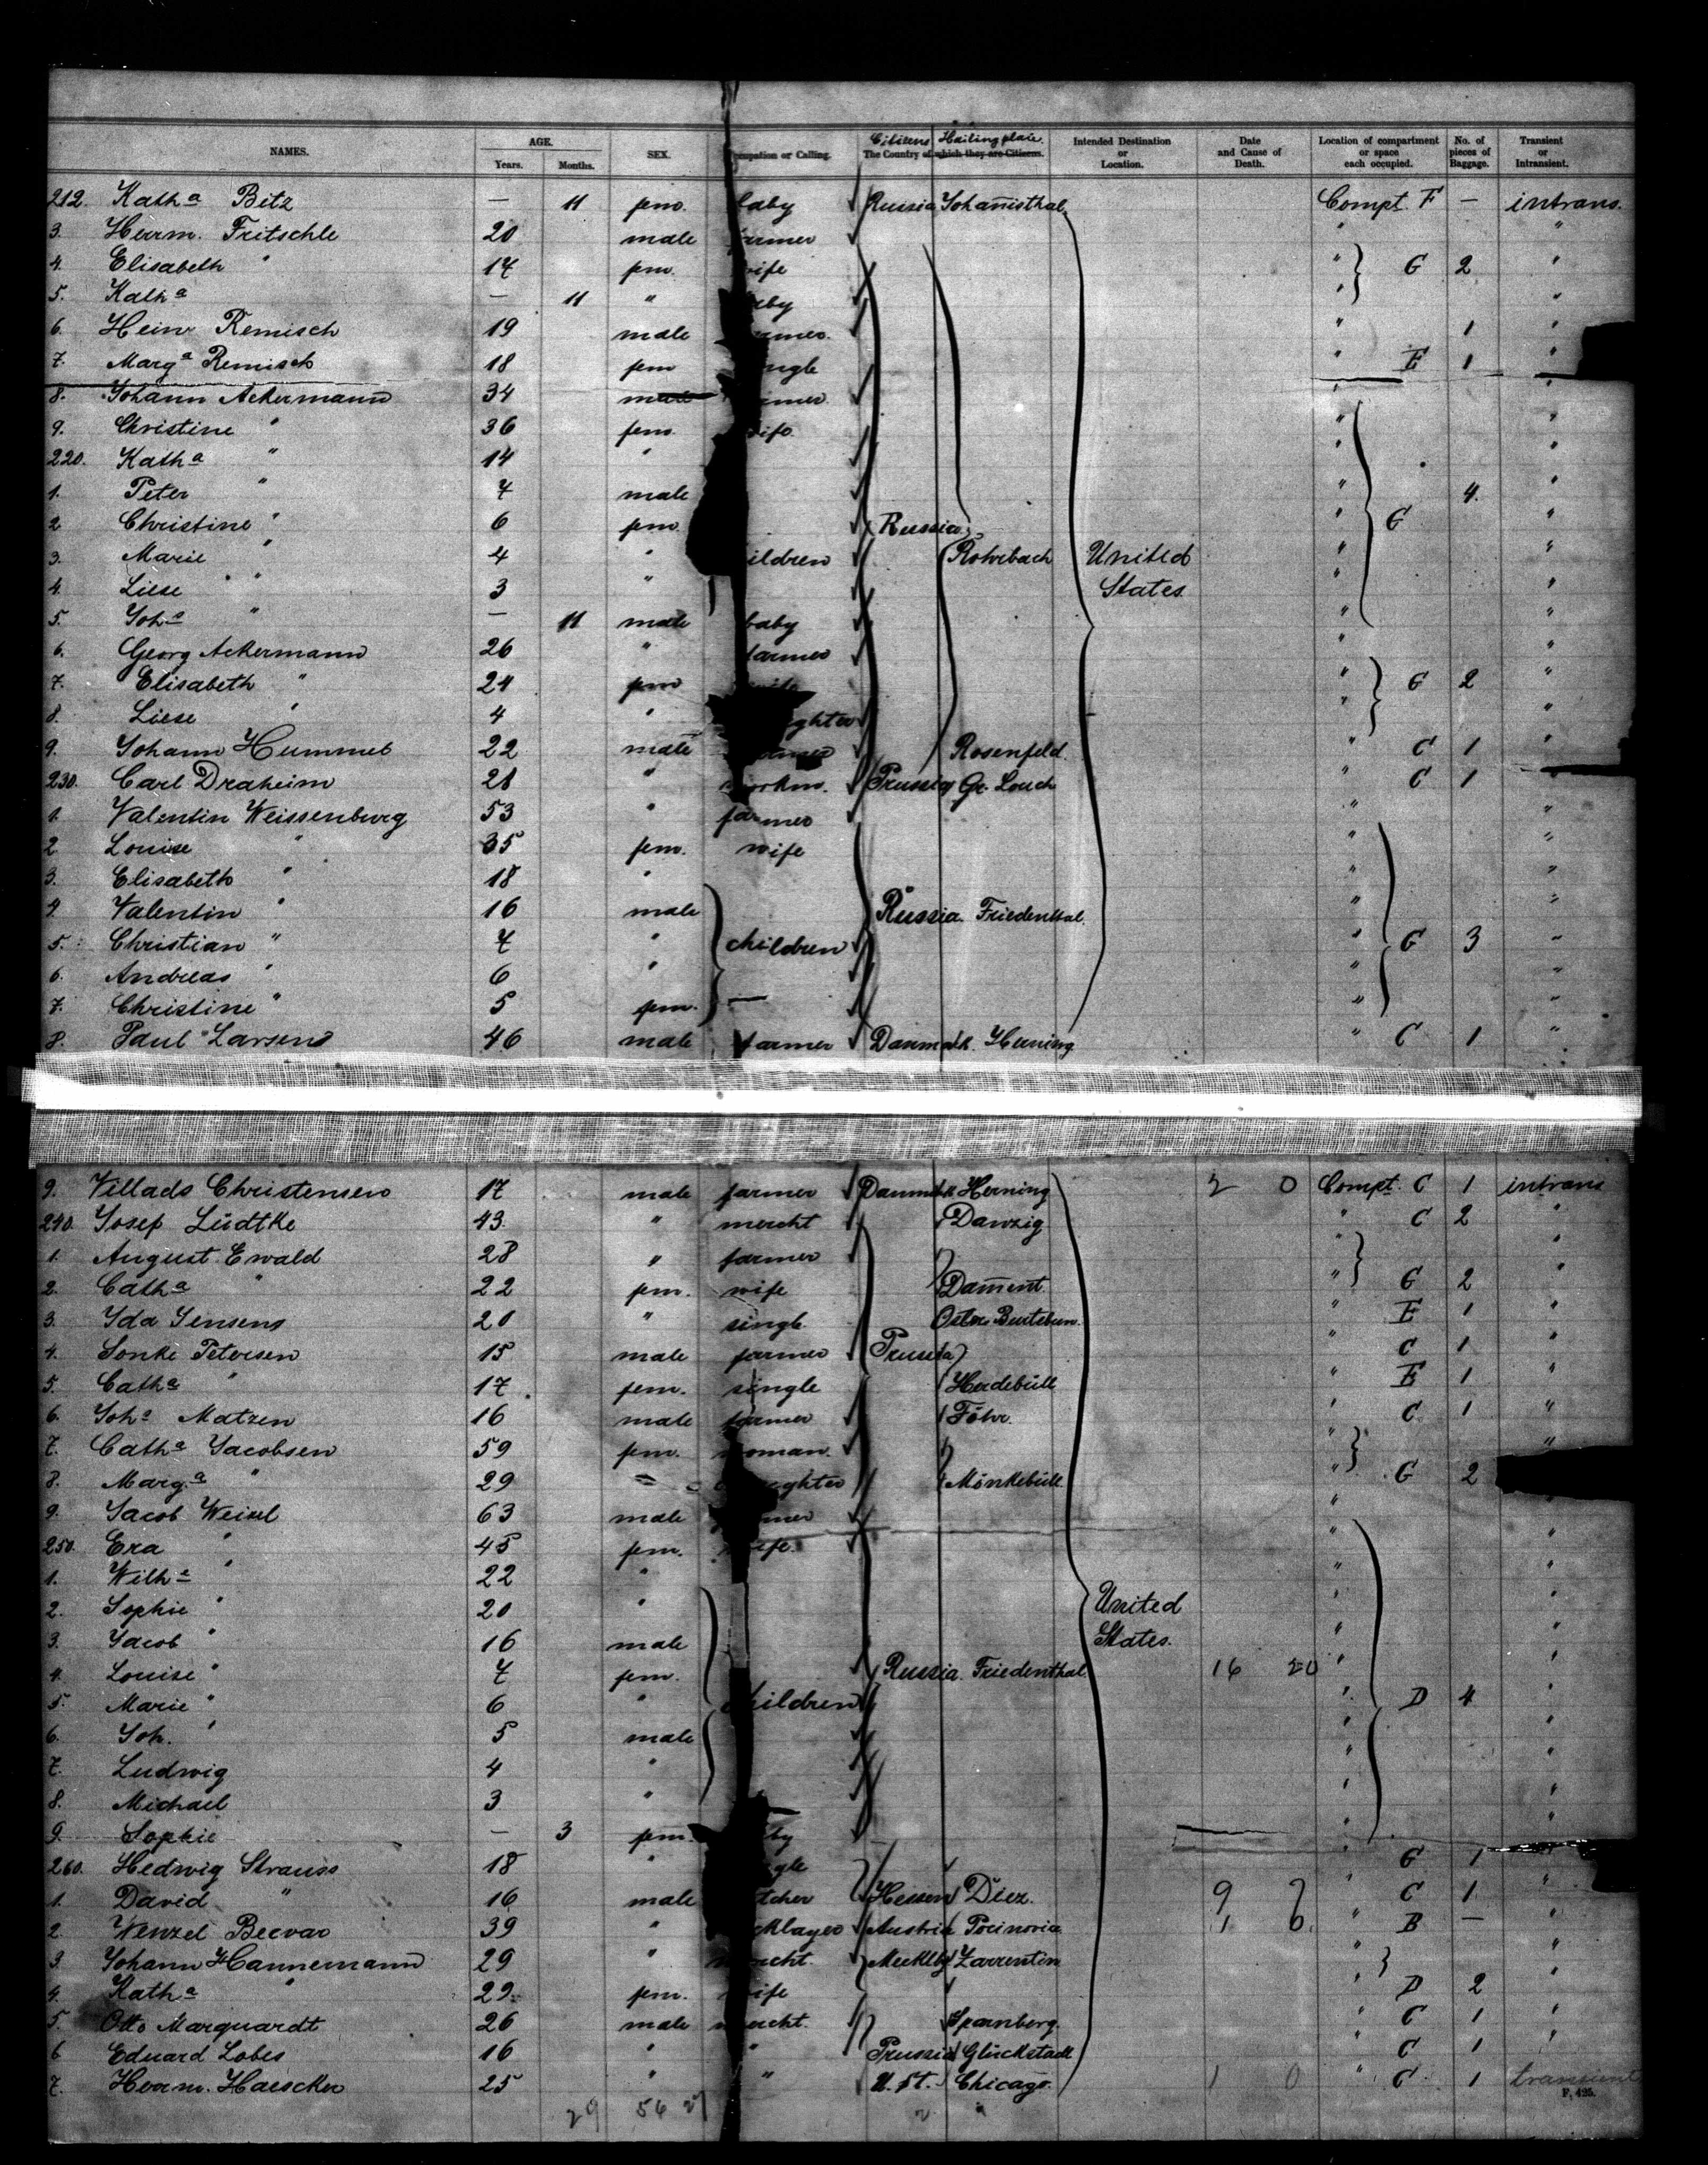 NAMES. AGE. Years. Months. SEX. upation or Calling. Citizens The Country of which they are Citizens. Hailing place. Intended Destination or Location. Date and Cause of Death. Location of compartment or space each occupied. No. of pieces of Baggage. Transient or Intransient.
212. Kath<u>a</u> Bitz — 11 fem. baby Russia Johannisthal Compt. F — intrans.
3. Herrm. Fritschle 20 male farmer "  "
4. Elisabeth " 17 fem. wife " G 2 "
5. Kath<u>a</u> — 11 " baby " "
6. Heinr Remisch 19 male farmer. " 1 "
7. Marg<u>a</u> Remisch 18 fem single " E 1 "
8. Johann Ackermann 34 male farmer " "
9. Christine " 36 fem. wife. " "
220. Kath<u>a</u> " 14 " " "
1. Peter " 7 male " 4. "
2 Christine " 6 fem. Russia. " G "
3. Marie " 4 " children Rohrbach United " "
4. Liese " " 3 " States. " "
5. Joh<u>a</u> " — 11 male baby " "
6. Georg Ackermann 26 " farmer " "
7. Elisabeth " 24 fem wife " G 2 "
8. Liese " 4 " ghter " "
9. Johann Hummel 22 male farmer Rosenfeld. " C 1 "
230. Carl Draheim 28 " workm. Prussia Gr. Louch " C 1 "
1. Valentin Weissenburg 53 " farmer " "
2 Louise " 35 fem. wife " "
3. Elisabeth " 18 " " "
4. Valentin " 16 male Russia. Friedenthal. " "
5. Christian " 7 " children " G 3 "
6. Andreas " 6 " " "
7. Christine " 5 fem. — " "
8. Paul Larsen 46 male farmer Danmark. Herning " C 1 "
9. Villads Christensen 17 male farmer Danmark Herning 2 0 Compt. C 1 intrans
240. Josef Lüdtke 43. " mercht Danzig " C 2 "
1. August Ewald 28 " farmer " "
2. Cath<u>a</u> " 22 fem. wife Dament. " G 2 "
3. Ida Jensens 20 " single. " E 1 "
4. Sönke Petersen 15 male farmer Prussia " C 1 "
5. Cath<u>a</u> " 17 fem. single Herdebüll " E 1 "
6. Joh<u>a</u> Matzen 16 male farmer Föhr. " C 1 "
7. Cath<u>a</u> Jacobsen 59 fem. woman. " "
8. Marg.<u>a</u> " 29 ghter Mönkebüll " G 2
9. Jacob Weixel 63 male farmer " "
250. Eva " 45 fem. wife. " "
1. Wilh<u>a</u> " 22 " " "
2. Sophie " 20 " United " "
3. Jacob " 16 male States. " "
4. Louise " 7 fem. Russia. Friedenthal 16 20 " "
5. Marie " 6 " children " D 4 "
6. Joh. " 5 male " "
7. Ludwig 4 " " "
8. Michael 3 " " "
9. Sophie — 3 fem. baby " "
260. Hedwig Strauss 18 " single " G 1
1. David " 16 male tcher Hessen Diez. 9 7 " C 1 "
2. Wenzel Becvar 39 " cklayer Austria 1 0. " B — "
3 Johann Hannemann 29 " mercht. Mecklbg Zarrentin " "
4. Kath<u>a</u> " 29 fem. wife " D 2 "
5. Otto Marquardt 26 male mercht. Sparnberg. " C 1 "
6 Eduard Lobes 16 " " Prussia Glückstadt " C 1 "
7. Herm. Haescker 25 " " U. St. Chicago. 1 0 " C 1 transient
F. 425.
29 54 27